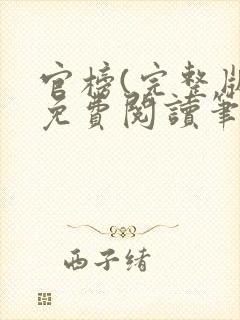 官榜(完整版
免費閱讀筆
西子緒